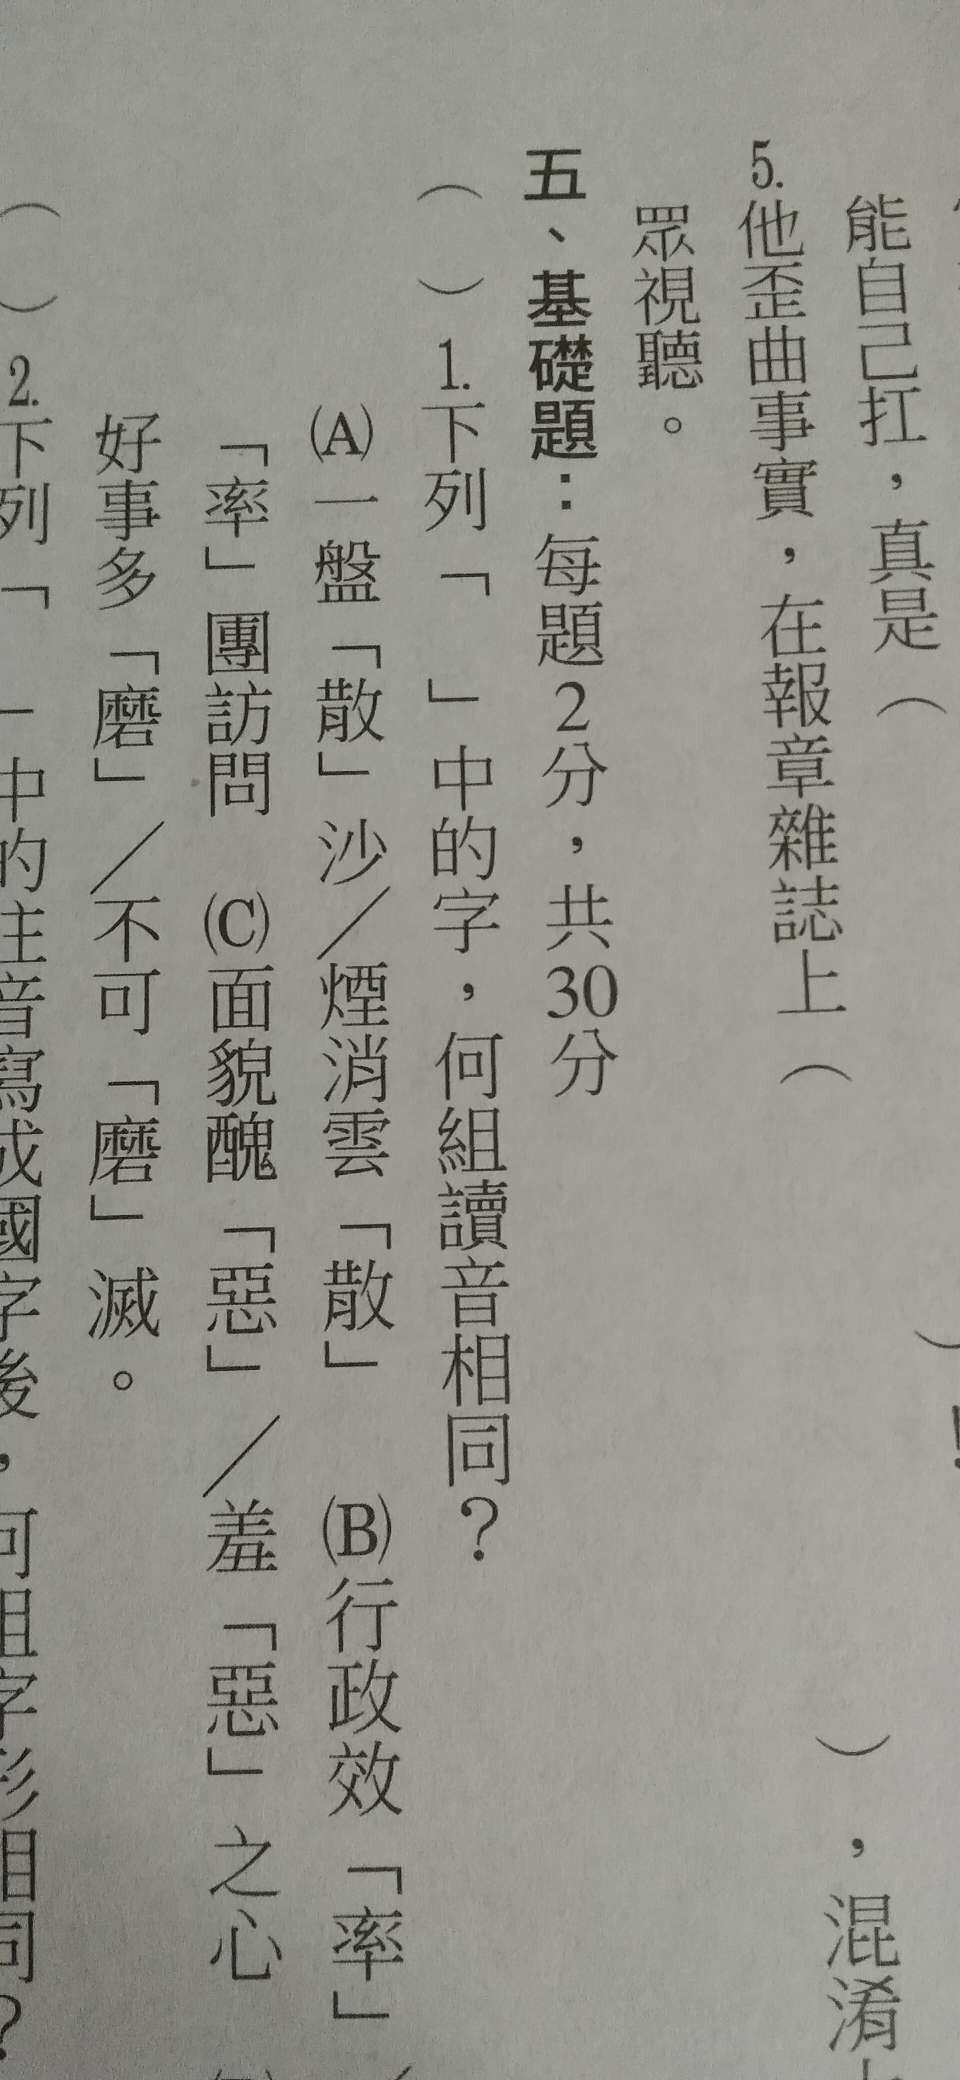 能自己扛，真是（　　）！
5.他歪曲事實，在報章雜誌上（　　），混淆
眾視聽。
五、基礎題：每題2分，共30分
（　）1.下列「　」中的字，何組讀音相同？
(A)一盤「散」沙／煙消雲「散」　(B)行政效「率」／
「率」團訪問　(C)面貌醜「惡」／羞「惡」之心
好事多「磨」／不可「磨」滅。
（　）2.下列「　」中的注音寫成國字後，何組字形相同？